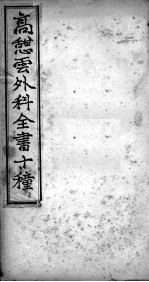 高憩雲外科全書十種